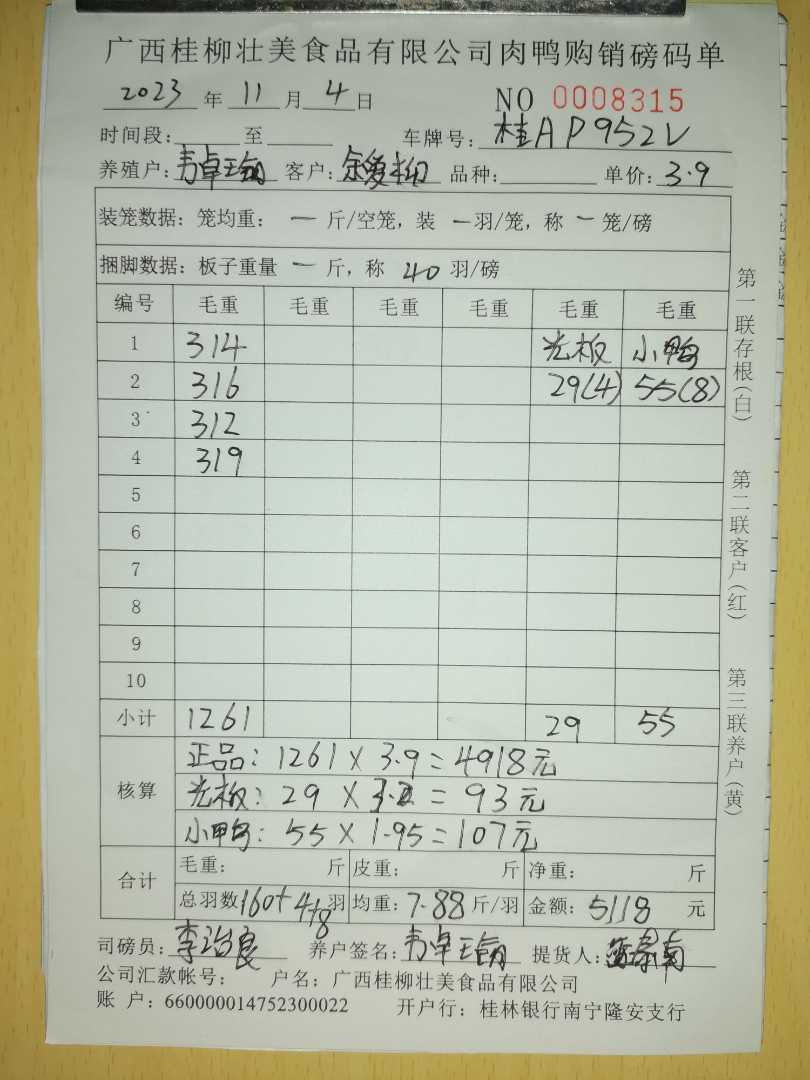 广西桂柳壮美食品有限公司肉鸭购销磅码单
2023 年 11 月 4 日 NO 0008315
时间段: 至 车牌号: 桂AP952V
养殖户: 韦卓 客户: 余爱柳 品种: 单价: 3.9
装笼数据: 笼均重: 一 斤/空笼, 装 一 羽/笼, 称 一 笼/磅
捆脚数据: 板子重量 一 斤, 称 40 羽/磅
编号 毛重 毛重 毛重 毛重 毛重 毛重
1 314 光板 小鸭
2 316 29(4) 55(8)
3 312
4 319
5
6
7
8
9
10
小计 1261 29 55
核算 正品: 1261 X 3.9 = 4918元
光板: 29 X 3.2 = 93元
小鸭: 55 X 1.95 = 107元
合计 毛重: 斤 皮重: 斤 净重: 斤
总羽数 160+4+8 羽 均重: 7.88 斤/羽 金额: 5118 元
司磅员: 李治良 养户签名: 韦卓 提货人:
公司汇款帐号: 户名: 广西桂柳壮美食品有限公司
账 户: 660000014752300022 开户行: 桂林银行南宁隆安支行
第一联存根(白)
第二联客户(红)
第三联养户(黄)